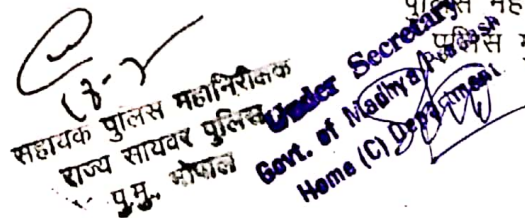 पुलिस
सहायक पुलिस महानिरीक्षक
राज्य सायबर पुलिस
पु.मु. भोपाल
Under Secretary
Govt. of Madhya Pradesh
Home (C) Department